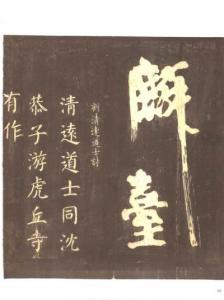 臺
刻清遠道士詩
清遠道士同沈
恭子游虎丘寺
有作